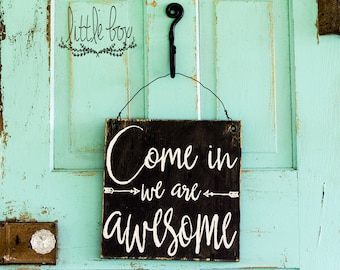 little box
Come in
we are
awesome